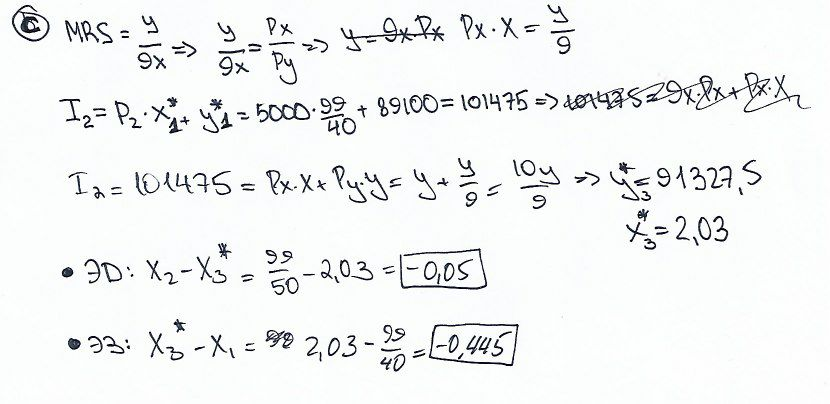 ⓒ MRS = y/9x => y/9x = Px/Py => y = 9x Px Px·X = y/9
I₂ = P₂·x₁* + y₁* = 5000·99/40 + 89100 = 101475 => 101475 = 9x·Px + Px·X
I₂ = 101475 = Px·X + Py·y = y + y/9 = 10y/9 => y₃* = 91327,5
x₃* = 2,03
• ЭД: X₂ - X₃* = 99/50 - 2,03 = -0,05
• ЭЗ: X₃* - X₁ = 2,03 - 99/40 = -0,445